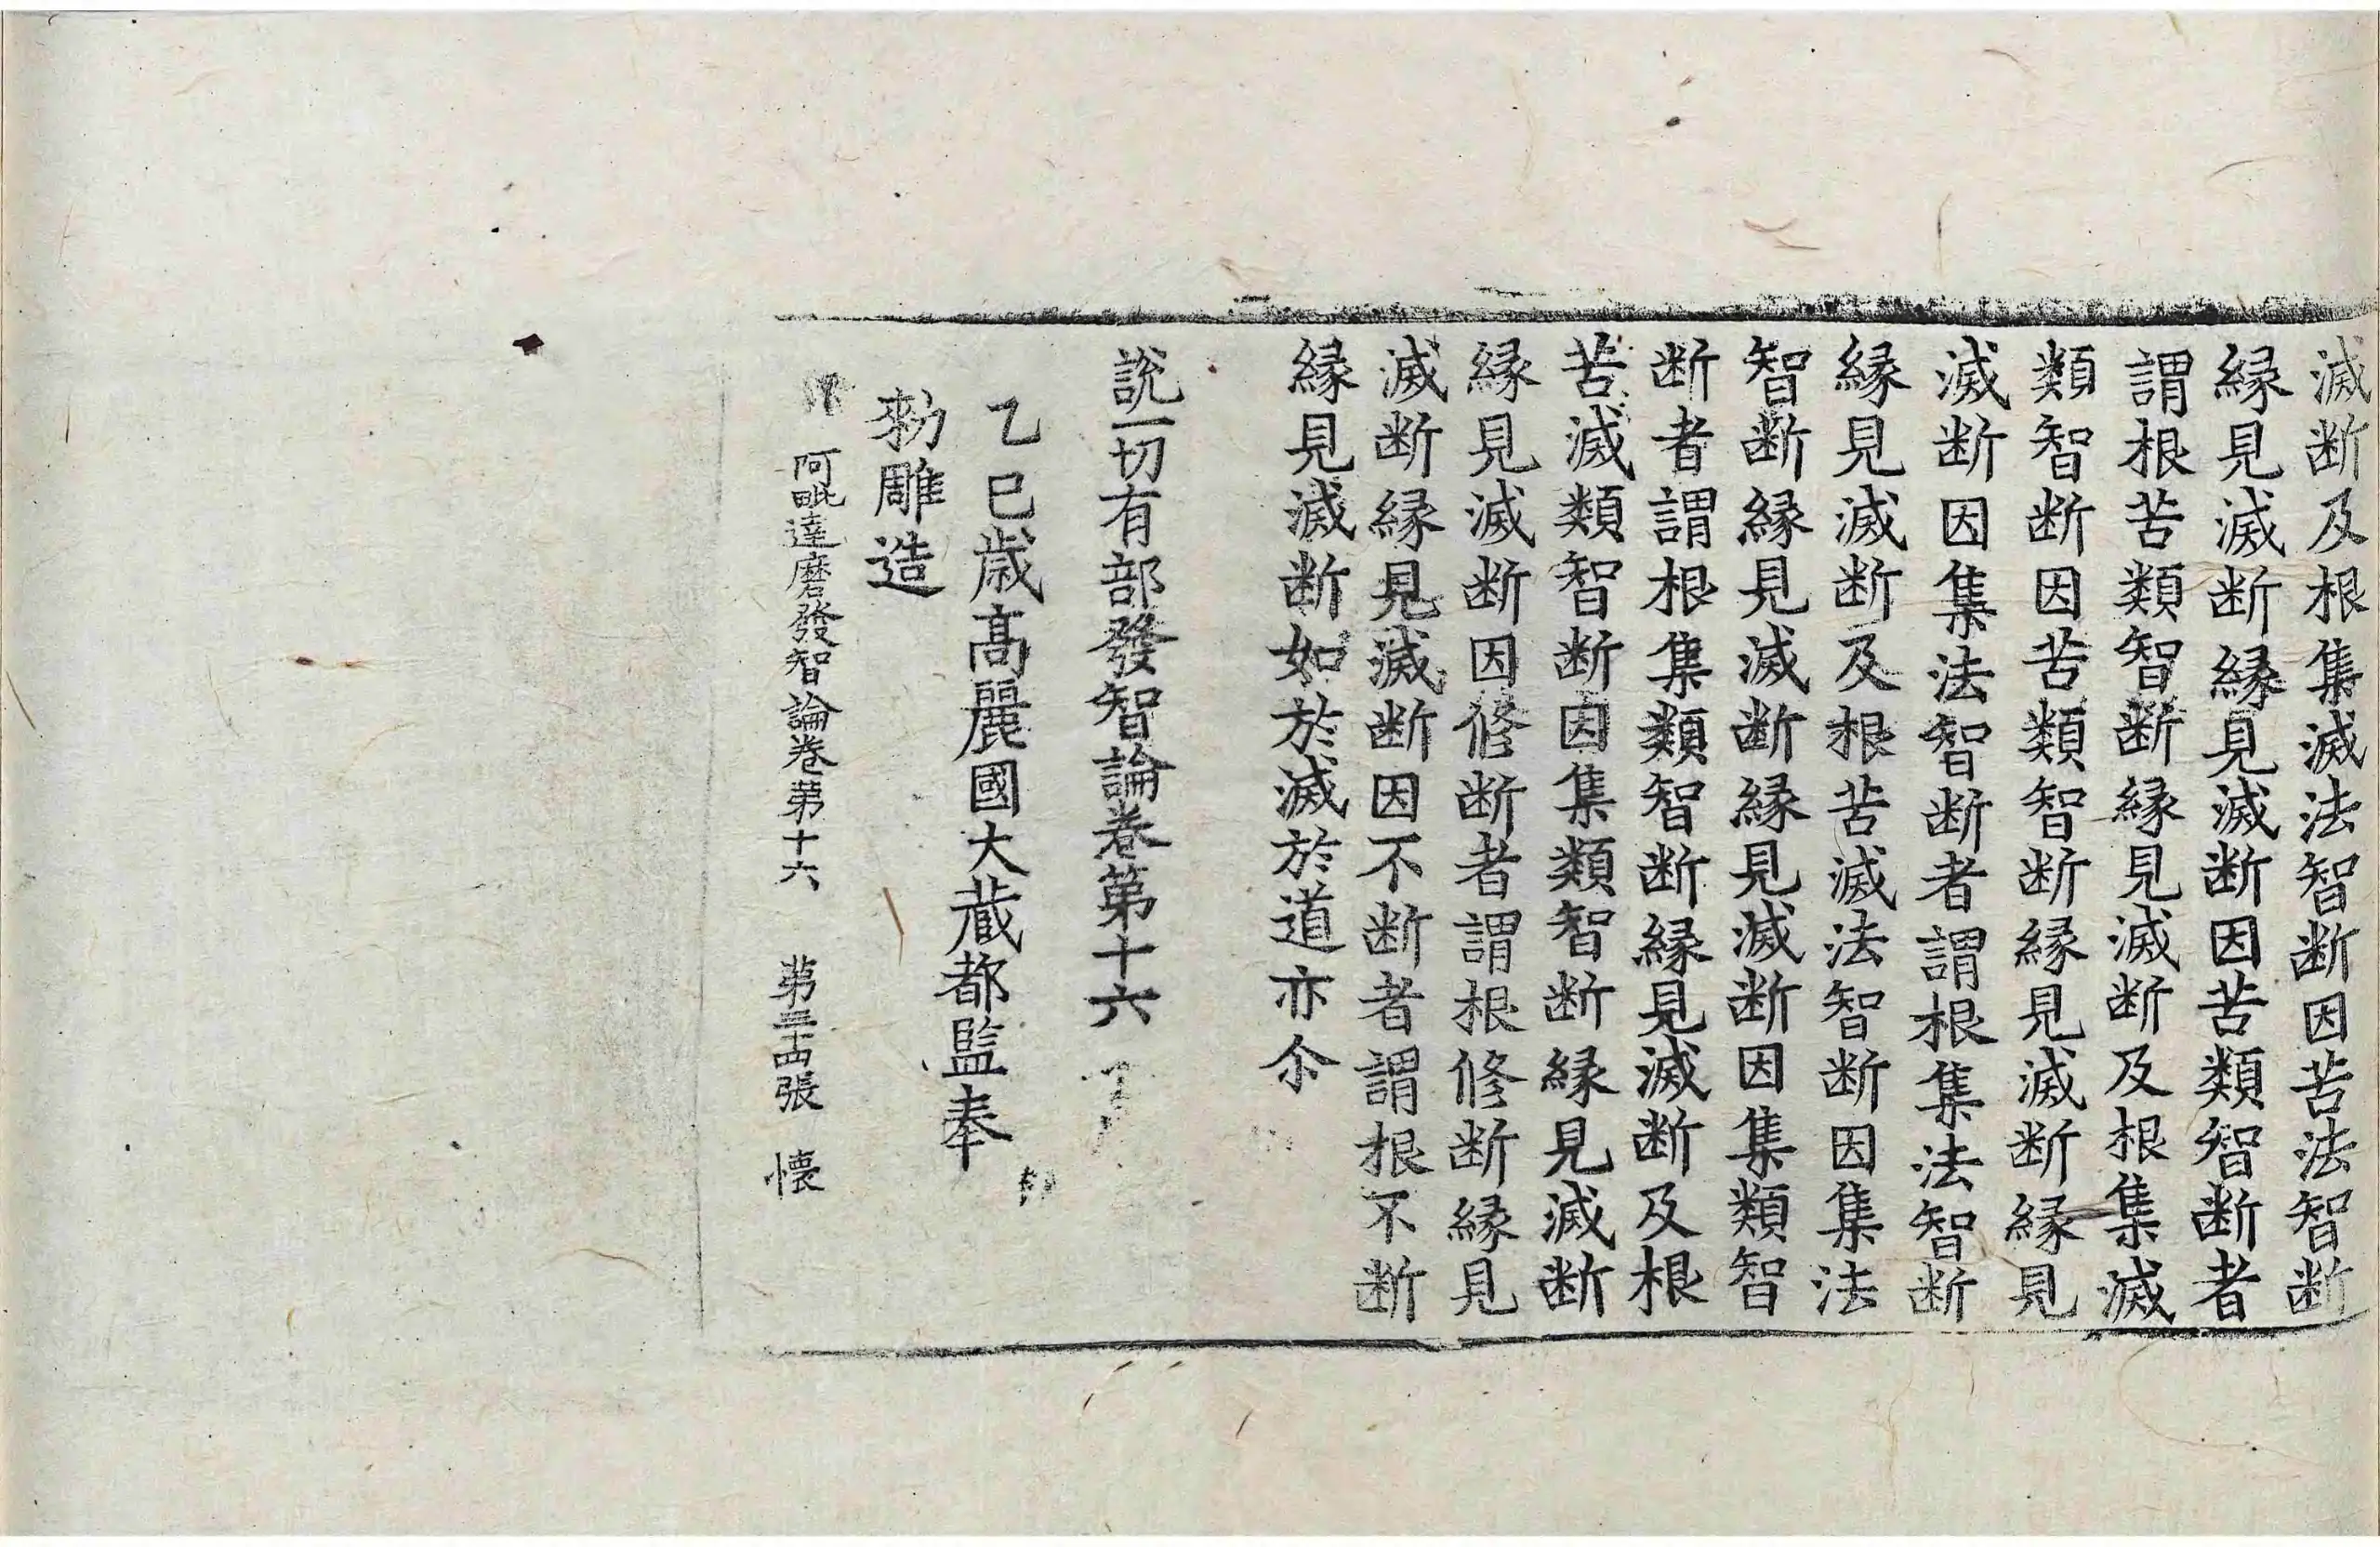 滅断及根集滅法智断因苦法智断
縁見滅断縁見滅断因苦類智断者
謂根苦類智断縁見滅断及根集滅
類智断因苦類智断縁見滅断縁見
滅断因集法智断者謂根集法智断
縁見滅断及根苦滅法智断因集法
智断縁見滅断縁見滅断因集類智
断者謂根集類智断縁見滅断及根
苦滅類智断因集類智断縁見滅断
縁見滅断因修断者謂根修断縁見
滅断縁見滅断因不断者謂根不断
縁見滅断如於滅於道亦尒
說一切有部發智論卷第十六
乙巳歲高麗國大藏都監奉
勑雕造
阿毗達磨發智論卷苐十六 苐二十四張 懐